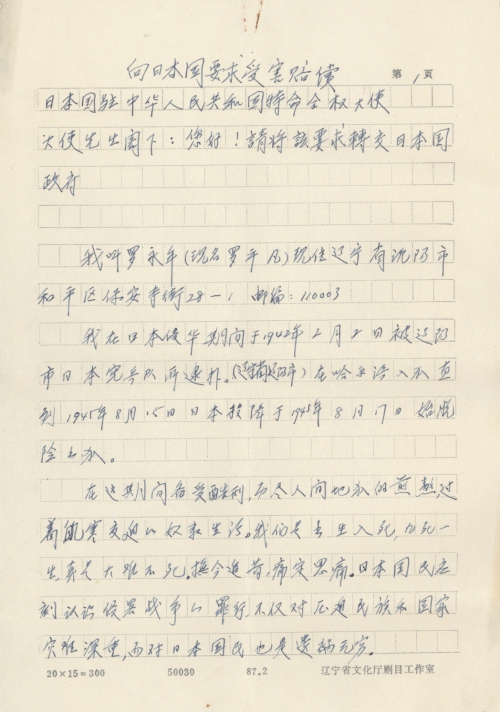 向日本国要求受害赔偿
第 1 页
日本国驻中华人民共和国特命全权大使
大使先生阁下：您好！請将該要求轉交日本国
政府
我叫罗永年(现名罗平凡)现住辽宁省沈阳市
和平区保安寺街28-1 邮编：110003
我在日本侵华期间于1942年2月2日被辽阳
市日本宪兵队所逮捕。(辽宁省辽阳市)在哈尔滨入狱直
到1945年8月15日日本投降于1945年8月17日始脱
险出狱。
在这期间备受酷刑，历尽人间地狱的煎熬，过
着飢寒交迫的奴隶生活。我们是出生入死，九死一
生，真是大难不死。抚今追昔，痛定思痛。日本国民应
刻认识侵略战争的罪行，不仅对压迫民族和国家
灾难深重，而对日本国民也是遗祸无穷。
20×15=300 50030 87.2 辽宁省文化厅剧目工作室